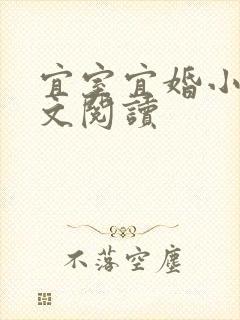 宜室宜婚小
文閱讀
不落空塵